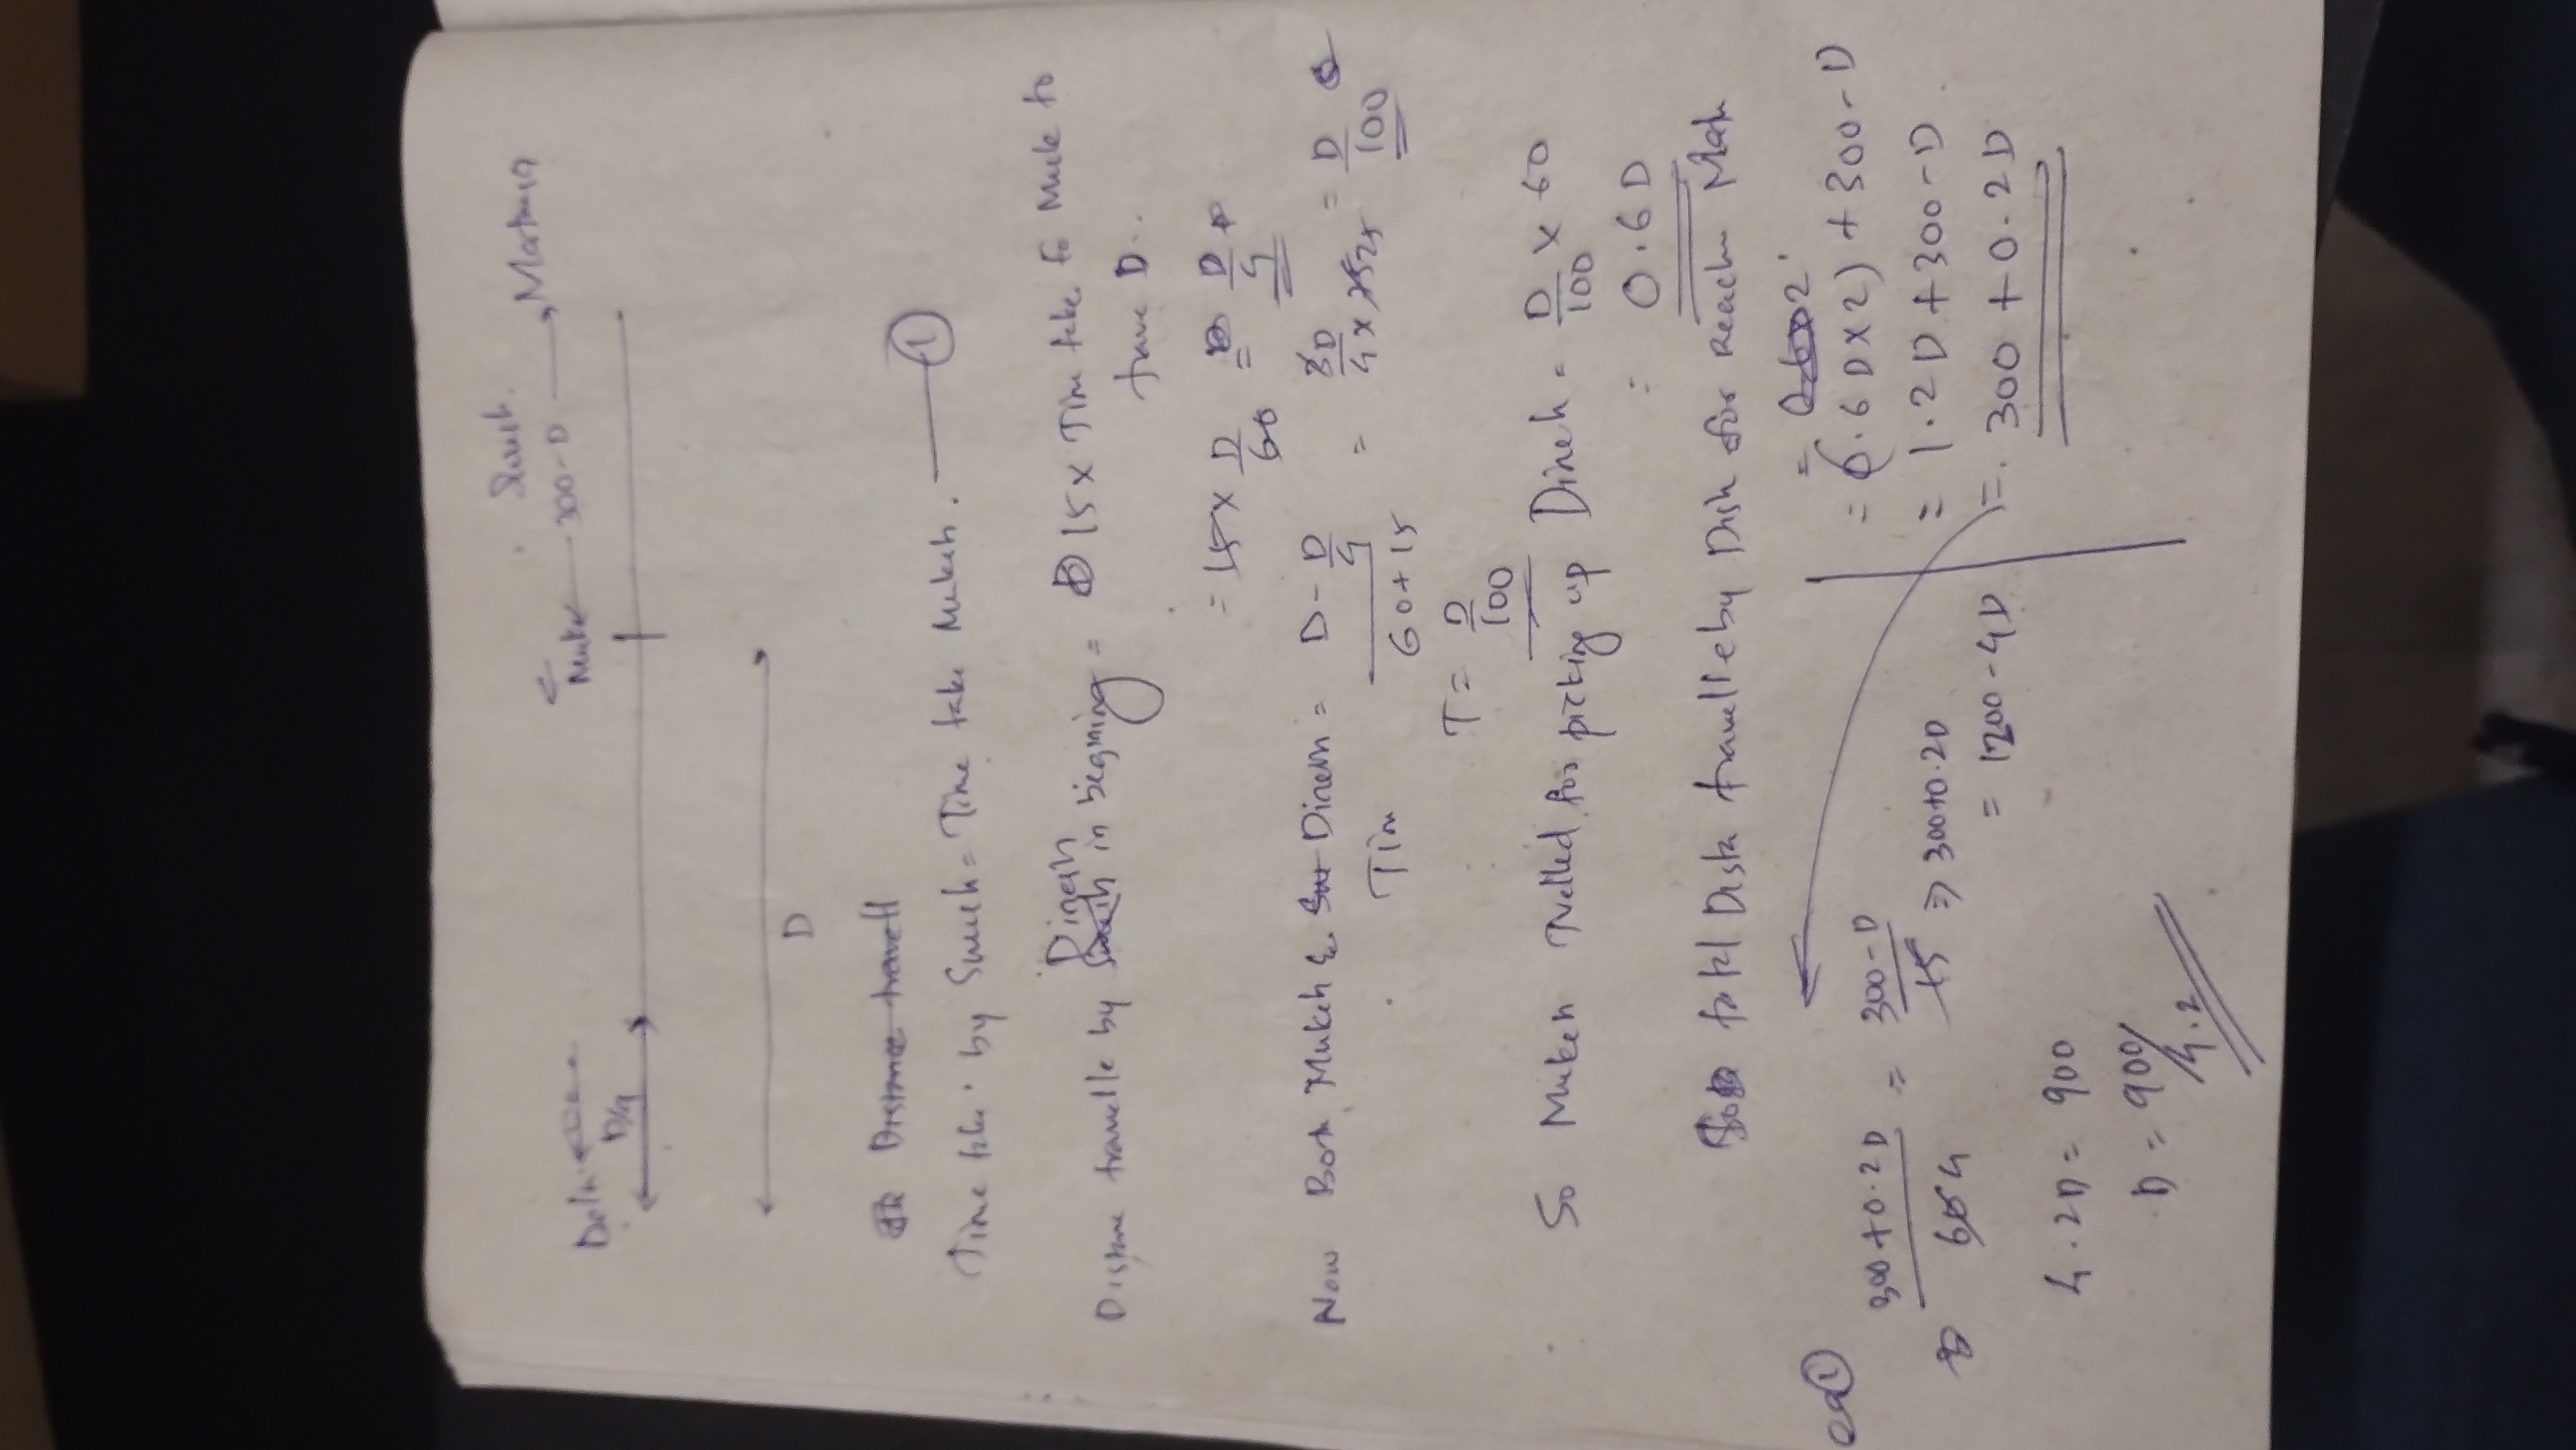 Suresh.
Mukes ← 300-D → Mathura
Delhi
D/4
D
Distance travell
Time take by Suresh = Time take Mukesh. — ①
Dinesh
Distane travelle by Suresh in begining = 15 x Time take to Muke to
trave D..
= 15 x D/60 = D/4
Now Both Mukesh & Sur Dinesh = D - D/4 / 60+15 = 3D / 4 x 75 25 = D/100
Tim
T = D/100
So Mukesh Trvelled for picking up Dinesh = D/100 x 60
= 0.6D
totl Dist travelle by Dish for reach Math
= (0.6D x 2) + 300 - D
= 1.2D + 300 - D
= 300 + 0.2D
eq ①
300+0.2D / 60 4 = 300-D / 15 ⇒ 300+0.2D
= 1200-4D
4.2D = 900
D = 900/4.2